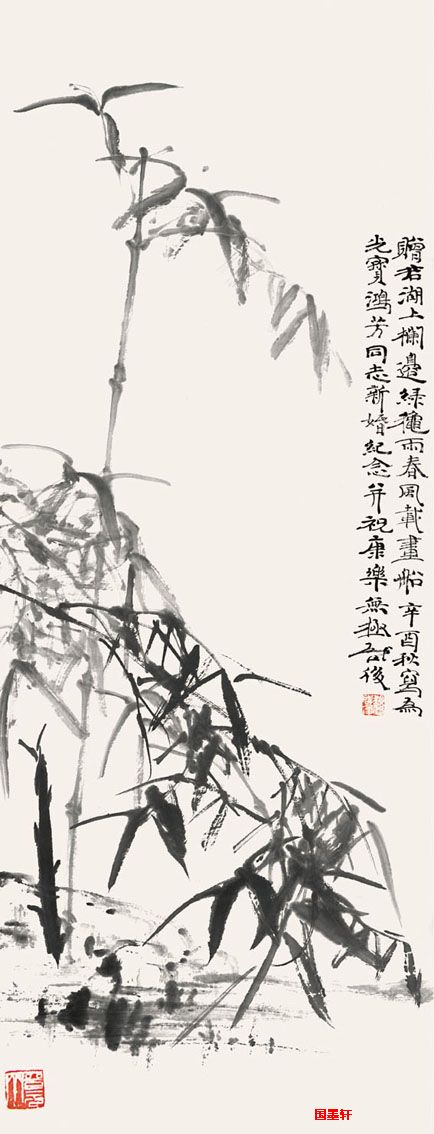 贈君湖上欄邊綠龝雨春風載畫船辛酉秋寫為
光寶鴻芳同志新婚紀念并祝康樂無極後
国墨轩